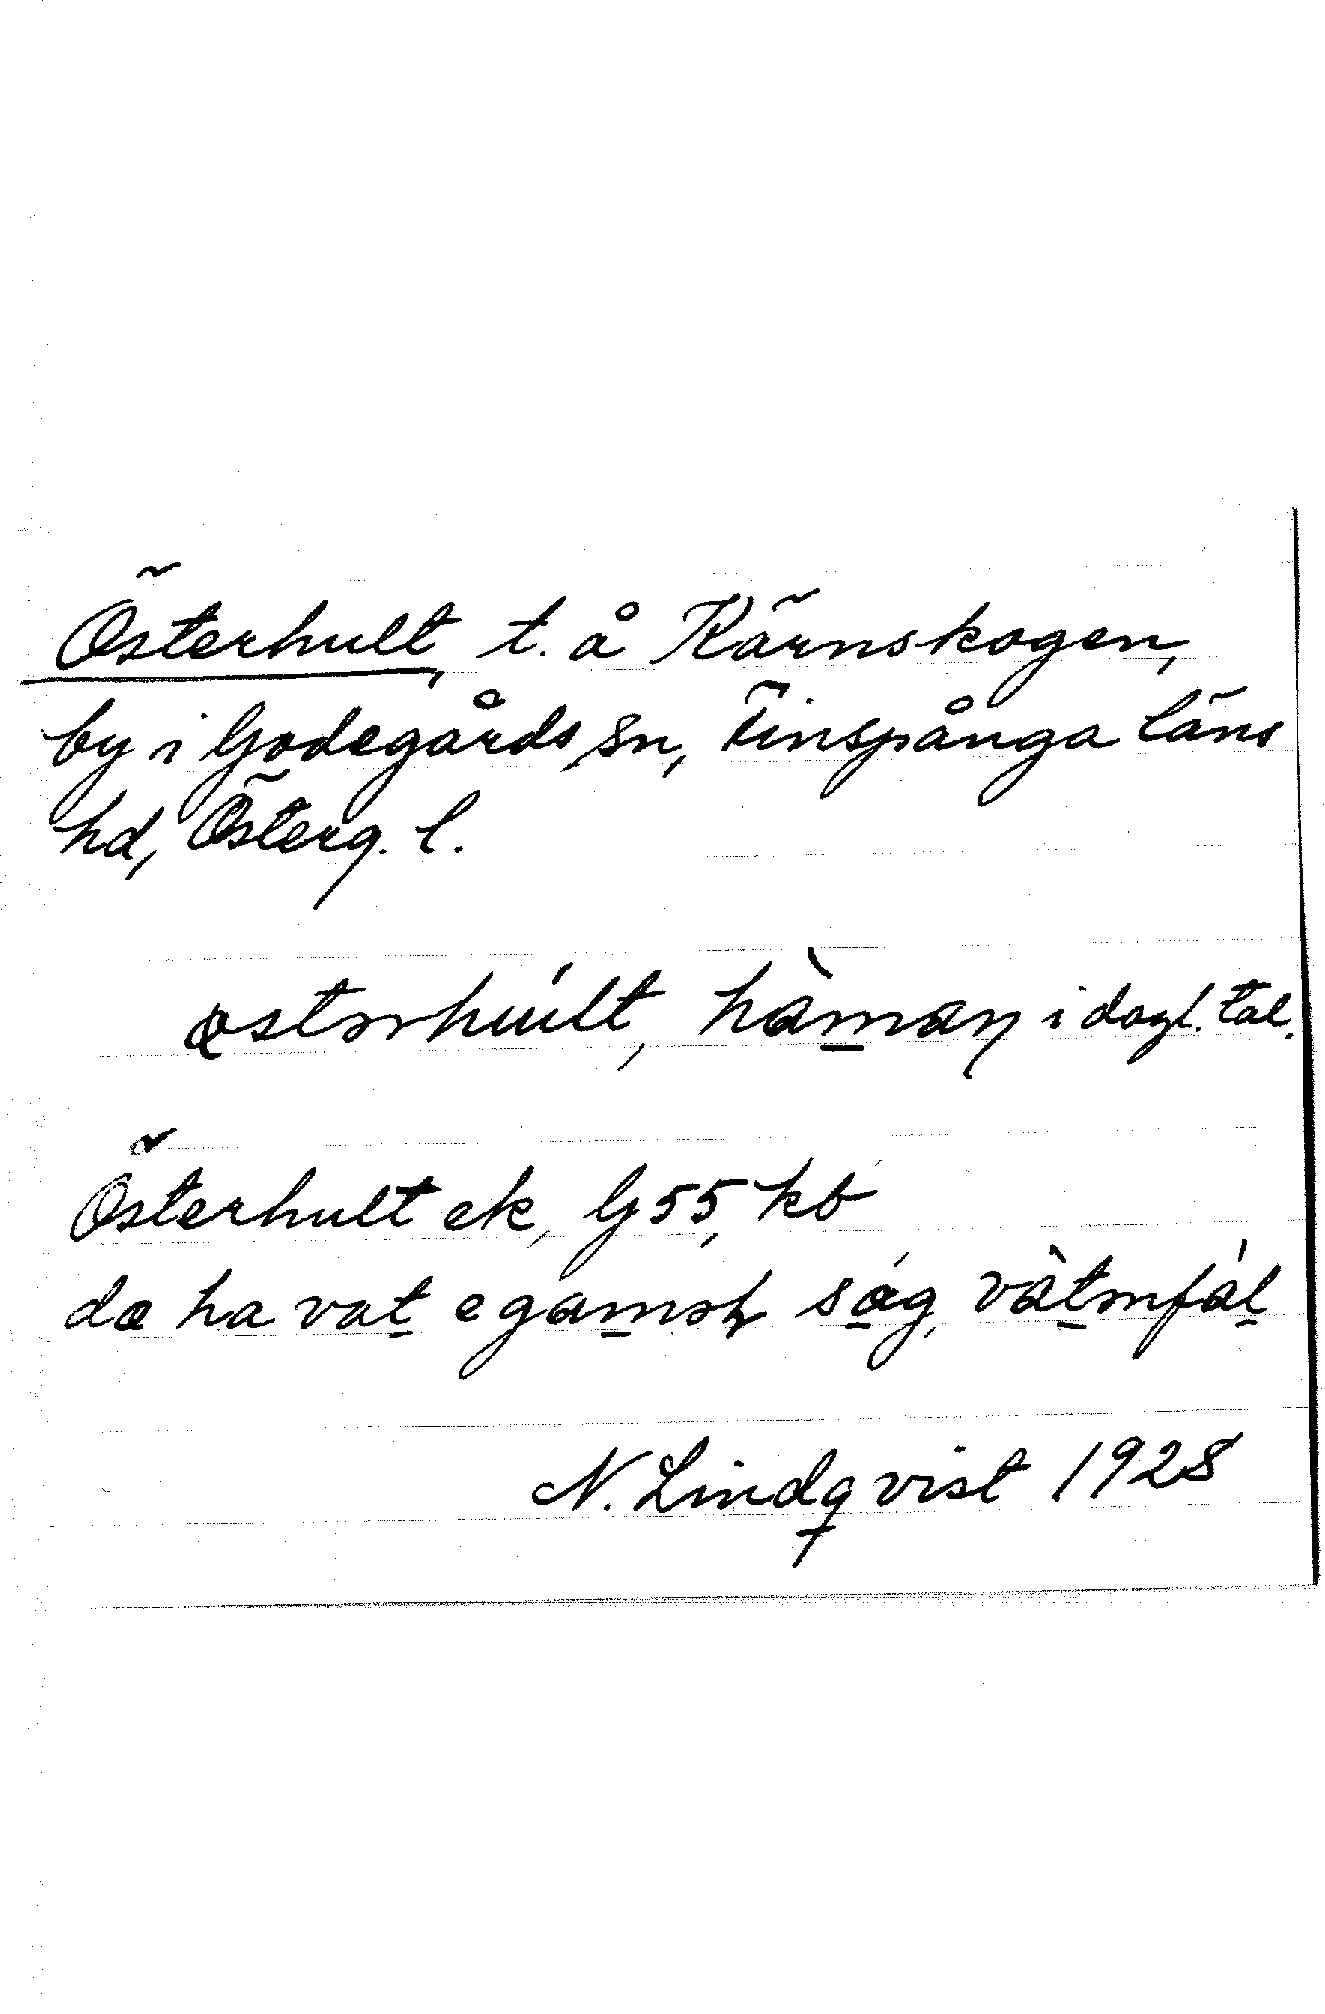 Österhult, t. å Kärnskogen,
by i Godegårds sn, Finspånga läns
hd, Österg. l.
østərhúlt, hàman i dagl. tal.
Österhult ek, G 55, kb
dα ha vat e gaməl sag, vàtnfál
N. Lindqvist 1928